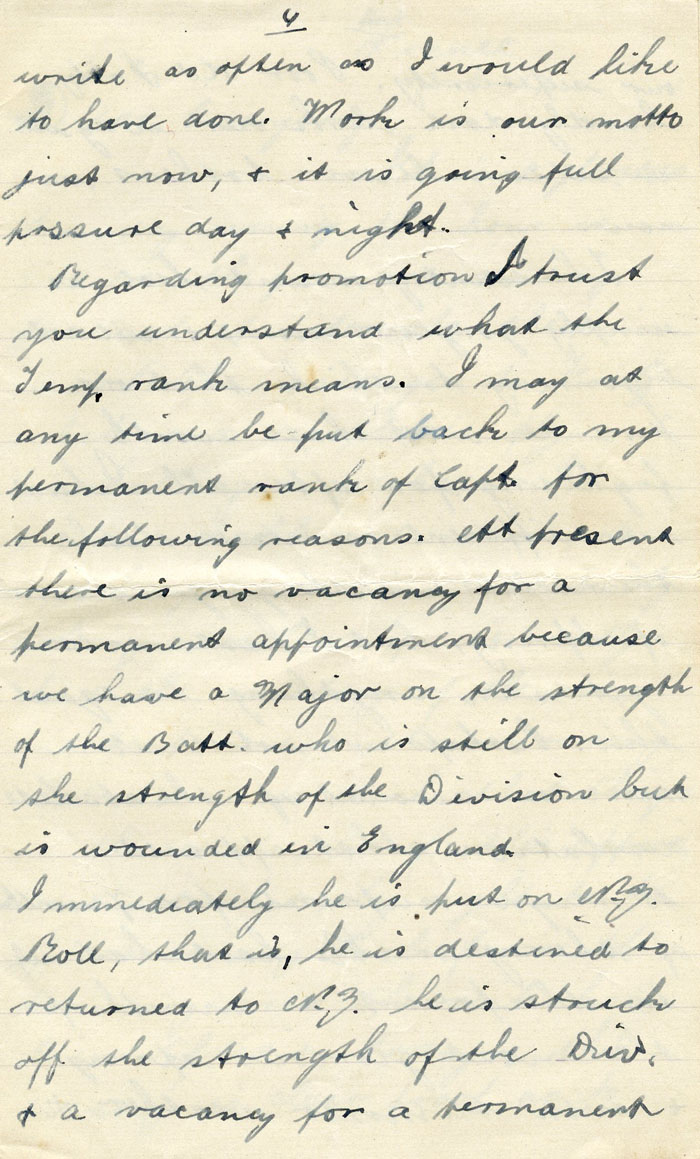 4
write as often as I would like
to have done. Work is our motto
just now, & it is going full
prssure day & night.
Regarding promotion I trust
you understand what the
Temp. rank means. I may at
any time be put back to my
permanent rank of Capt. for
the following reasons. At present
there is no vacancy for a
permanent appointment because
we have a Major on the strength
of the Batt. who is still on
the strength of the Division but
is wounded in England.
Immediately he is put on N.Z.
Roll, that is, he is destined to
returned to N.Z. he is struck
off the strength of the Div.
& a vacancy for a permanent